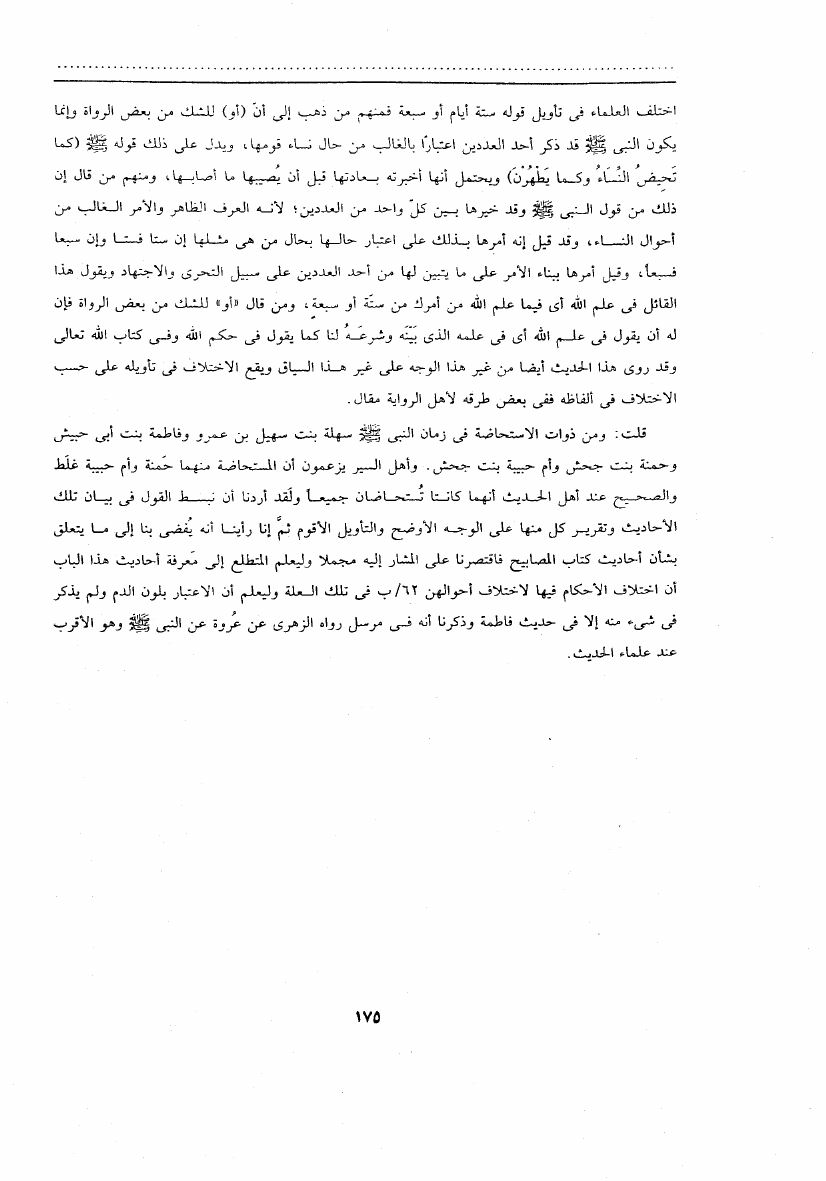 اختلف العلماء فى تأويل قوله ستة أيام أو سبعة فمنهم من ذهب إلى أنّ (أو) للشك من بعض الرواة وإنما
يكون النبى ﷺ قد ذكر أحد العددين اعتبارًا بالغالب من حال نساء قومها، ويدل على ذلك قوله ﷺ (كما
تَحيضُ النِّسَاءُ وكـما يَطْهُرْنَ) ويحتمل أنها أخبرته بـعادتها قبل أن يُصيبها ما أصابـها، ومنهم من قال إن
ذلك من قول الـنبى ﷺ وقد خيرها بـين كلّ واحد من العددين؛ لأنـه العرف الظاهر والأمر الـغالب من
أحوال النسـاء، وقد قيل إنه أمرها بـذلك على اعتبار حالـها بحال من هى مثـلها إن ستا فستـا وإن سبعا
فسبعاً، وقيل أمرها ببناء الأمر على ما يتبين لها من أحد العددين على سبيل التحرى والاجتهاد ويقول هذا
القائل فى علم الله أى فيما علم الله من أمرك من ستّة أو سبعة، ومن قال «أو» للشك من بعض الرواة فإن
له أن يقول فى علـم الله أى فى علمه الذى بَيَّنَه وشرعَـهُ لنا كما يقول فى حكم الله وفـى كتاب الله تعالى
وقد روى هذا الحديث أيضا من غير هذا الوجه على غير هـذا السياق ويقع الاختلاف فى تأويله على حسب
الاختلاف فى ألفاظه ففى بعض طرقه لأهل الرواية مقال.
قلت: ومن ذوات الاستحاضة فى زمان النبى ﷺ سهلة بنت سهيل بن عمرو وفاطمة بنت أبى حبيش
وحمنة بنت جحش وأم حبيبة بنت جحش. وأهل السير يزعمون أن المستحاضة منهما حَمنة وأم حبيبة غلَط
والصحـيح عند أهل الحـديث أنهما كانـتا تُستحـاضان جميعـاً ولَقد أردنا أن نبسـط القول فى بيـان تلك
الأحاديث وتقريـر كل منها على الوجـه الأوضح والتأويل الأقوم ثمَّ إنا رأينـا أنه يُفضى بنا إلى مـا يتعلق
بشأن أحاديث كتاب المصابيح فاقتصرنا على المشار إليه مجملا وليعلم المتطلع إلى مَعرفة أحاديث هذا الباب
أن اختلاف الأحكام فيها لاختلاف أحوالهن ٦٢/ب فى تلك الـعلة وليعلم أن الاعتبار بلون الدم ولم يذكر
فى شىء منه إلا فى حديث فاطمة وذكرنا أنه فـى مرسل رواه الزهرى عن عُروة عن النبى ﷺ وهو الأقرب
عند علماء الحديث.
١٧٥